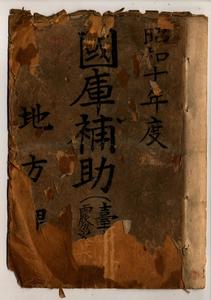 昭和十年度
國庫補助(臺
地方